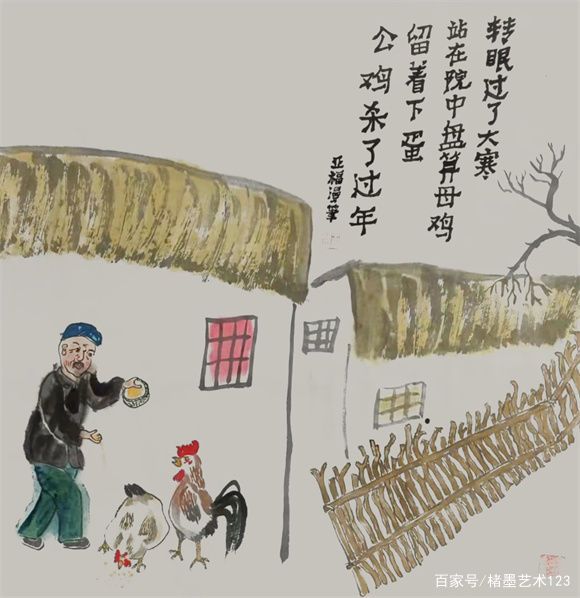 转眼过了大寒
站在院中盘算母鸡
留着下蛋
公鸡杀了过年
亚福漫笔
百家号/楮墨艺术123